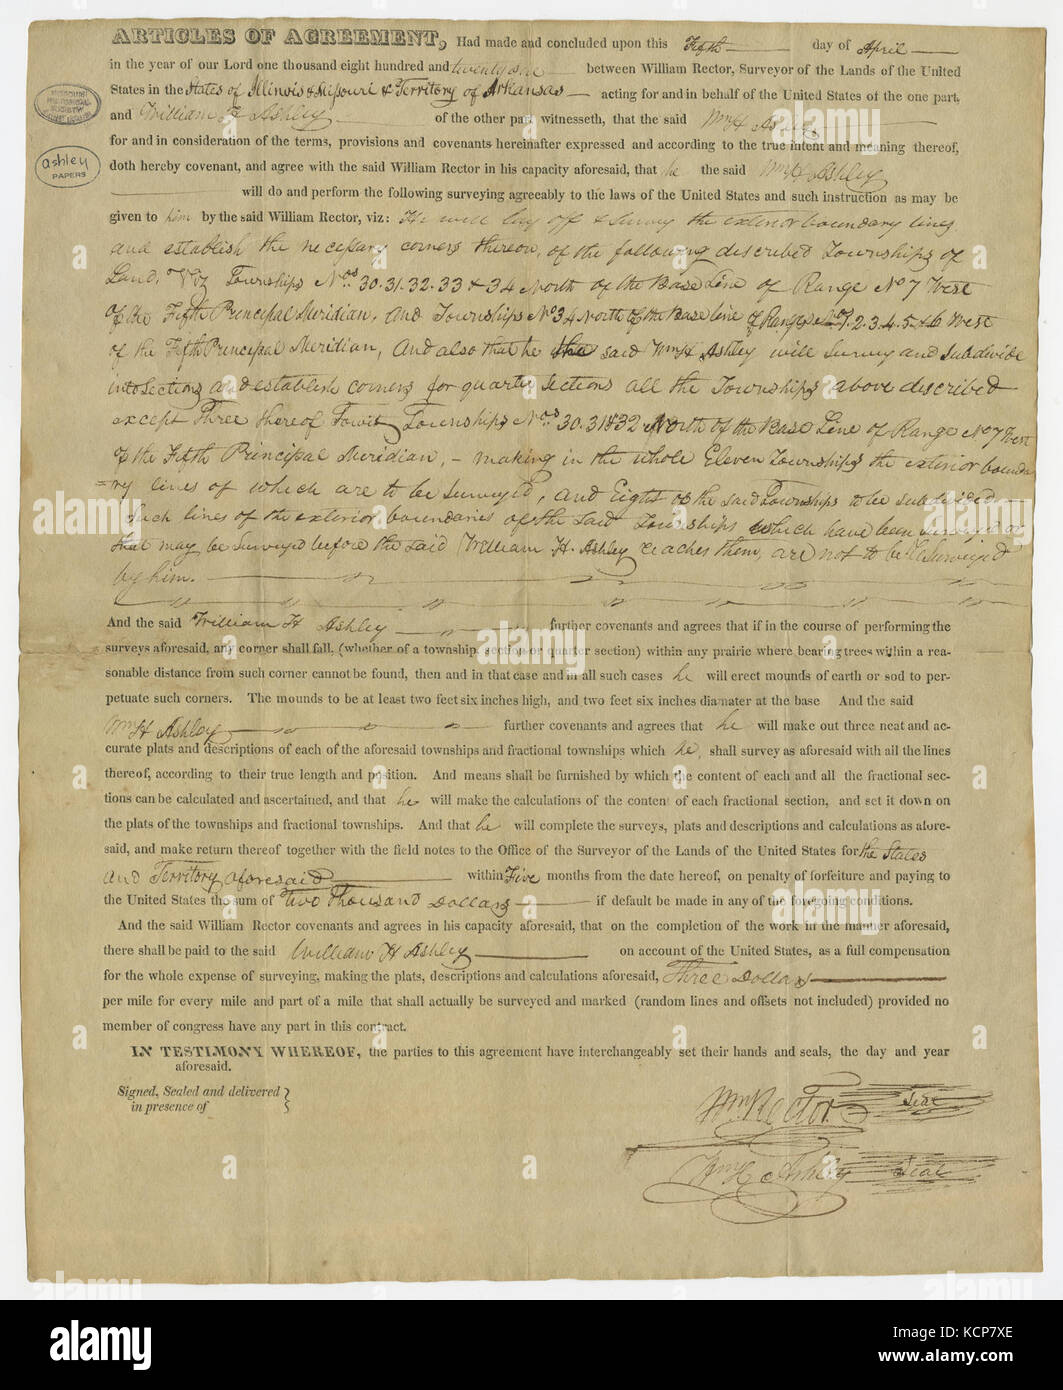 ARTICLES OF AGREEMENT, Had made and concluded upon this Fifth day of April
in the year of our Lord one thousand eight hundred and twenty one between William Rector, Surveyor of the Lands of the United
States in the States of Illinois & Missouri & Territory of Arkansas acting for and in behalf of the United States of the one part,
and William H Ashley of the other part witnesseth, that the said Wm H Ashley
for and in consideration of the terms, provisions and covenants hereinafter expressed and according to the true intent and meaning thereof,
doth hereby covenant, and agree with the said William Rector in his capacity aforesaid, that he the said Wm H Ashley
will do and perform the following surveying agreeably to the laws of the United States and such instruction as may be
given to him by the said William Rector, viz: He will lay off & survey the exterior boundary lines
and establish the necessary corners thereon, of the following described Townships of
Land, Viz Townships Nos 30. 31. 32. 33 & 34 North of the Base Line of Range No 7 West
of the Fifth Principal Meridian. And Townships No 34 North of the Base line of Ranges No 1. 2. 3. 4. 5 & 6 West
of the Fifth Principal Meridian, And also that he the said Wm H Ashley will Survey and Subdivide
into Sections and establish corners for quarter Sections all the Townships above described
except Three thereof Towit Townships Nos 30. 31 & 32 North of the Base Line of Range No 7 West
of the Fifth Principal Meridian, – making in the whole Eleven Townships the exterior bounda
=ry lines of which are to be Surveyed, and Eight of the said Townships to be subdivided
Such lines of the exterior boundaries of the said Townships which have been surveyed or
that may be Surveyed before the said William H. Ashley reaches them, are not to be reSurveyed
by him.
And the said William H Ashley further covenants and agrees that if in the course of performing the
surveys aforesaid, any corner shall fall, (whether of a township, section or quarter section) within any prairie where bearing trees within a rea-
sonable distance from such corner cannot be found, then and in that case and in all such cases he will erect mounds of earth or sod to per-
petuate such corners. The mounds to be at least two feet six inches high, and two feet six inches diameter at the base And the said
Wm H Ashley further covenants and agrees that he will make out three neat and ac-
curate plats and descriptions of each of the aforesaid townships and fractional townships which he shall survey as aforesaid with all the lines
thereof, according to their true length and position. And means shall be furnished by which the content of each and all the fractional sec-
tions can be calculated and ascertained, and that he will make the calculations of the content of each fractional section, and set it down on
the plats of the townships and fractional townships. And that he will complete the surveys, plats and descriptions and calculations as afore-
said, and make return thereof together with the field notes to the Office of the Surveyor of the Lands of the United States for the States
and Territory aforesaid within Five months from the date hereof, on penalty of forfeiture and paying to
the United States the sum of two thousand Dollars if default be made in any of the foregoing conditions.
And the said William Rector covenants and agrees in his capacity aforesaid, that on the completion of the work in the manner aforesaid,
there shall be paid to the said William H Ashley on account of the United States, as a full compensation
for the whole expense of surveying, making the plats, descriptions and calculations aforesaid, Three Dollars
per mile for every mile and part of a mile that shall actually be surveyed and marked (random lines and offsets not included) provided no
member of congress have any part in this contract.
IN TESTIMONY WHEREOF, the parties to this agreement have interchangeably set their hands and seals, the day and year
aforesaid.
Signed, Sealed and delivered
in presence of
Wm Rector Seal
Wm H Ashley Seal
MISSOURI HISTORICAL SOCIETY
ashley
PAPERS
alamy
Image ID: KCP7XE
www.alamy.com